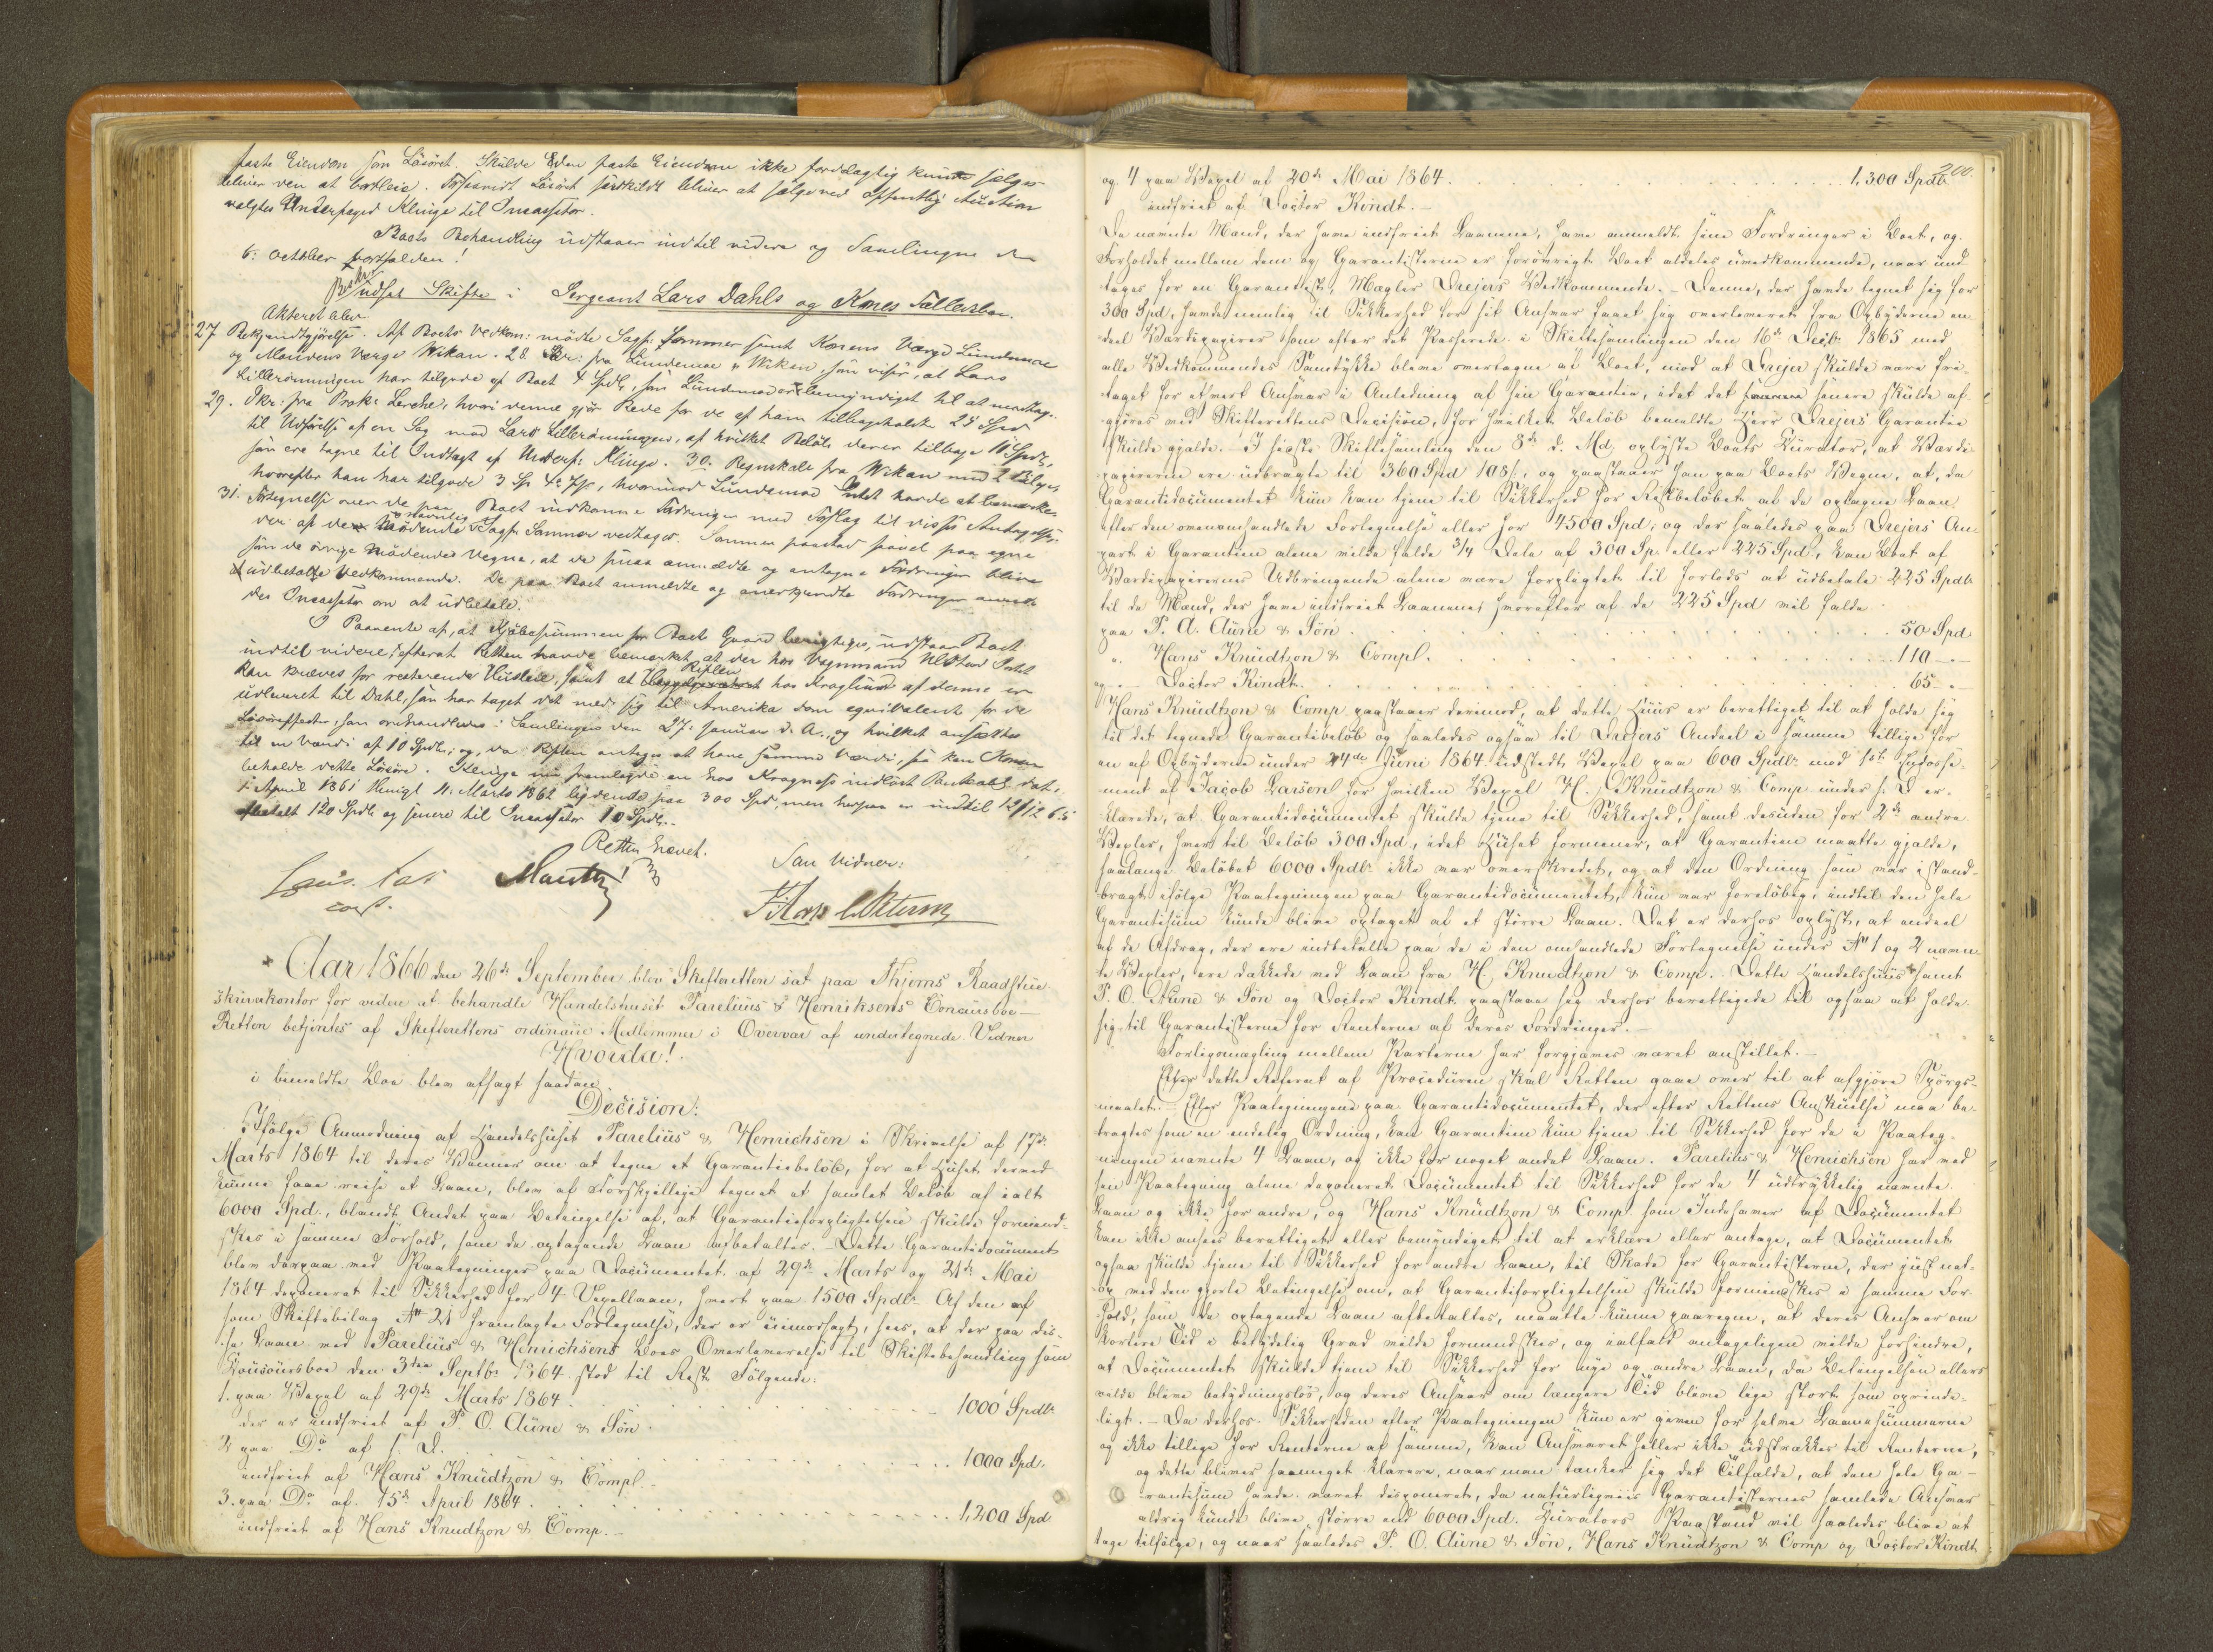 faste Eiendom som Løsøret. Skulde den faste Eiendom ikke fordelagtig kunde sælges
bliver den at bortleie. Forsaavidt Løsøret særskildt bliver at sælge ved offentlig Auction
valgtes Underfoged Klinge til Incassator.
Boets Behandling udstaaer indtil videre og Samlingen den
6. October bortfalder!
Udsat Skifte i Sergeant Lars Dahls og Kones Fællesbo.
Akteret blev
27 Bekjendtgjørelse. Af Boets Vedkom: mødte Sagf: Sommer samt Konens Værge Lundemoe
og Mandens Værge Wikan. 28 Skr: fra Lundemoe & Wikan, som viser, at Lars
Lillerønningen har tilgode af Boet 4 Spdlr, som Lundemo er bemyndiget til at modtage.
29. Skr: fra Prok: Lerche, hvori denne gjør Rede for de af ham tilbageholdte 25 Spd
til Udførelse af en Sag mod Lars Lillerønningen, af hvilket Beløb derer tilbage 11 Spdlr,
som ere tagne til Indtægt af Underf: Klinge. 30. Regnskab fra Wikan med 2 Bilage,
hvorefter han har tilgode 3 Sp 4 , hvorimod Lundemo Intet havde at bemærke.
31. Fortegnelse over de paa Boet indkomne Fordringer med Forslag til disses Antagelse,
der af de Mødende navnlig Sagf. Sommer vedtages. Sommer paastod saavel paa egne
som de øvrige Mødendes Vegne, at de saaa anmeldte og antagne Fordringer blive
at udbetale Vedkommende. De paa Boet anmeldte og anerkjendte Fordringer anmode
des Incassator om at udbetale.
I Paavente af, at Kjøbesummen for Boets Gaard berigtiges, udstaaer Boet
indtil videre, efterat Retten havde bemærket, at der hos Vognmand Intet
kan kræves for resterende Huusleie, samt at Riflen hos Kroglund af denne er
udleveret til Dahl, som har taget det med sig til Amerika som equivalent for de
Løsøreffecter, som omhandledes i Samlingen den 27. Januar d. A. og hvilket ansættes
til en Værdi af 10 Spdlr, og, da Riflen antages at have samme Værdi, saa kan Konen
beholde dette Løsøre. Klinge nu fremlagde en hos Kragness indløst Panteobl. dat.
1. April 1861 thingl 11. Marts 1862 lydende paa 300 Spd, men herpaa er indtil 12/12 65
betalt 120 Spdlr og senere til Incassator 10 Spdlr.
Retten hævet.
Som Vidner:
Aar 1866 den 26de September blev Skifteretten sat paa Thjems Raadstue
skriverkontor for videre at behandle Handelshuset Parelius & Henriksens Concursboe —
Retten betjentes af Skifterettens ordinaire Medlemmer i Overvær af undertegnede Vidner
Hvorda!
i bemeldte Boe blev afsagt saadan
Decision:
Ifølge Anmodning af Handelshuset Parelius & Henrichsen i Skrivelse af 17de
Marts 1864 til deres Venner om at tegne et Garantiebeløb, for at Huset dermed
kunne faae reise et Laan, blev af Forskjellige tegnet et samlet Beløb af ialt
6000 Spd., blandt Andet paa Betingelse af, at Garantieforpligtelsen skulde formind-
skes i samme Forhold, som de optagende Laan afbetaltes. — Dette Garantidocument
blev derpaa med Paategninger paa Documentet af 29de Marts og 21de Mai
1864 deponeret til Sikkerhed for 4 Vexellaan, hvert paa 1500 Spdlr. Af den af
som Skiftebilag No 21 fremlagte Fortegnelse, der er uimodsagt, sees, at der paa dis-
se Laan ved Parelius & Henrichsens Boes Overleverelse til Skiftebehandling som
Concursboe den 3die Septbr 1864 stod til Rest Følgende:
1. paa Vexel af 29de Marts 1864 . . . 1000 Spdlr
der er indfriet af P. O. Aune & Søn.
2 paa Do af s: D. . . . 1000 Spd.
indfriet af Hans Knudtzon & Compl.
3. paa Do af 15de April 1864 . . . 1,200 Spd
indfriet af Hans Knudtzon & Comp. —
200.
og 4 paa Vexel af 20de Mai 1864 . . . 1,300 Spdlr
indfriet af Doctor Kindt. —
De nævnte Mænd, der have indfriet Laanene, have anmeldt sine Fordringer i Boet, og
Forholdet mellem dem og Garantisterne er forøvrigt Boet aldeles uvedkommende, naar und
tages for en Garantist, Mægler Drejers Vedkommende. — Denne, der havde tegnet sig for
300 Spd, havde nemlig til Sikkerhed for sit Ansvar faaet sig overleveret fra Opbyderne en
deel Værdipapirer som efter det Passerede i Skiftesamlingen den 16de Decbr 1865 med
alle Vedkommendes Samtykke bleve overtagne af Boet, mod at Drejer skulde være fri-
taget for ethvert Ansvar i Anledning af sin Garantie, idet det senere skulde af-
gjøres ved Skifterettens Decision, for hvilket Beløb bemeldte Herr Drejers Garantie
skulde gjælde. I sidste Skiftesamling den 8de d. Md. oplyste Boets Curator, at Værdi-
papirerne ere udbragte til 360 Spd 108 s., og paastaaer han paa Boets Vegne, at, da
Garantidocumentet kun kan tjene til Sikkerhed for Restbeløbet af de optagne Laan
efter den ovenomhandlede Fortegnelse eller for 4500 Spd; og der saaledes paa Drejers An-
part i Garantien alene vilde falde 3/4 Dele af 300 Sp. eller 225 Spd, kan Boet af
Værdipapirernes Udbringende alene være forpligtet til forlods at udbetale 225 Spdlr
til de Mænd, der have indfriet Laanene, hvorefter af de 225 Spd vil falde
paa P. O. Aune & Søn . . . 50 Spd
" Hans Knudtzon & Compl. . . . 110 — " —
og — " — Doctor Kindt. . . . 65 — " —
Hans Knudtzon & Comp paastaaer derimod, at dette Huus er berettiget til at holde sig
til det tegnede Garantibeløb og saaledes ogsaa til Drejers Andeel i samme tillige for
en af Opbyderne under 24de Juni 1864 udstedt Vexel paa 600 Spdlr med 1ste Endosse-
ment af Jacob Larsen, for hvilken Vexel H. Knudtzon & Comp under s. D er-
klærede, at Garantidocumentet skulde tjene til Sikkerhed, samt desuden for 2de andre
Vexler, hver til Beløb 300 Spd., idet Huset formener, at Garantien maatte gjælde,
saalænge Beløbet 6000 Spdlr ikke var overskredet, og at den Ordning som var istand-
bragt ifølge Paategningen paa Garantidocumentet, kun var foreløbig, indtil den hele
Garantisum kunde blive optaget af et større Laan. Det er derhos oplyst, at endeel
af de Afdrag, der ere indbetalte paa de i den omhandlede Fortegnelse under No 1 og 2 nævn-
te Vexler, ere dækkede ved Laan fra H. Knudtzon & Comp. Dette Handelshuus samt
P. O. Aune & Søn og Doctor Kindt paastaae sig derhos berettigede til ogsaa at holde
sig til Garantisterne for Renterne af deres Fordringer. —
Forligsmægling mellem Parterne har forgjæves været anstillet. —
Efter dette Referat af Proceduren skal Retten gaae over til at afgjøre Spørgs-
maalet. — Efter Paategningene paa Garantidocumentet, der efter Rettens Anskuelse maa be-
tragtes som en endelig Ordning, kan Garantien kun tjene til Sikkerhed for de i Paateg-
ningen nævnte 4 Laan, og ikke for noget andet Laan. Parelius & Henrichsen har ved
sin Paategning alene deponeret Documentet til Sikkerhed for de 4 udtrykkelig nævnte
Laan og ikke for andre, og Hans Knudtzon & Comp. som Indehaver af Documentet
kan ikke ansees berettiget eller bemyndiget til at erklære eller antage, at Documentet
ogsaa skulde tjene til Sikkerhed for andre Laan, til Skade for Garantisterne, der just net-
op med den gjorte Betingelse om, at Garantiforpligtelsen skulde formindskes i samme For-
hold, som de optagende Laan afbetaltes, maatte kunne paaregne, at deres Ansvar om
kortere Tid i betydelig Grad vilde formindskes, og ialfald antageligen vilde forhindre,
at Documentet skulde tjene til Sikkerhed for nye og andre Laan, da Betingelsen ellers
vilde blive betydningsløs, og deres Ansvar om længere Tid blive lige stort som oprinde-
ligt. — Da derhos Sikkerheden efter Paategningen kun er given for selve Laanesummerne
og ikke tillige for Renterne af samme, kan Ansvaret heller ikke udstrækkes til Renterne,
og dette bliver saameget klarere, naar man tænker sig det Tilfælde, at den hele Ga-
rantisum havde været disponeret, da naturligviis Garantisternes samlede Ansvar
aldrig kunde blive større end 6000 Spd. Curators Paastand vil saaledes blive at
tage tilfølge, og naar saaledes P. O. Aune & Søn, Hans Knudtzon & Comp og Doctor Kindt